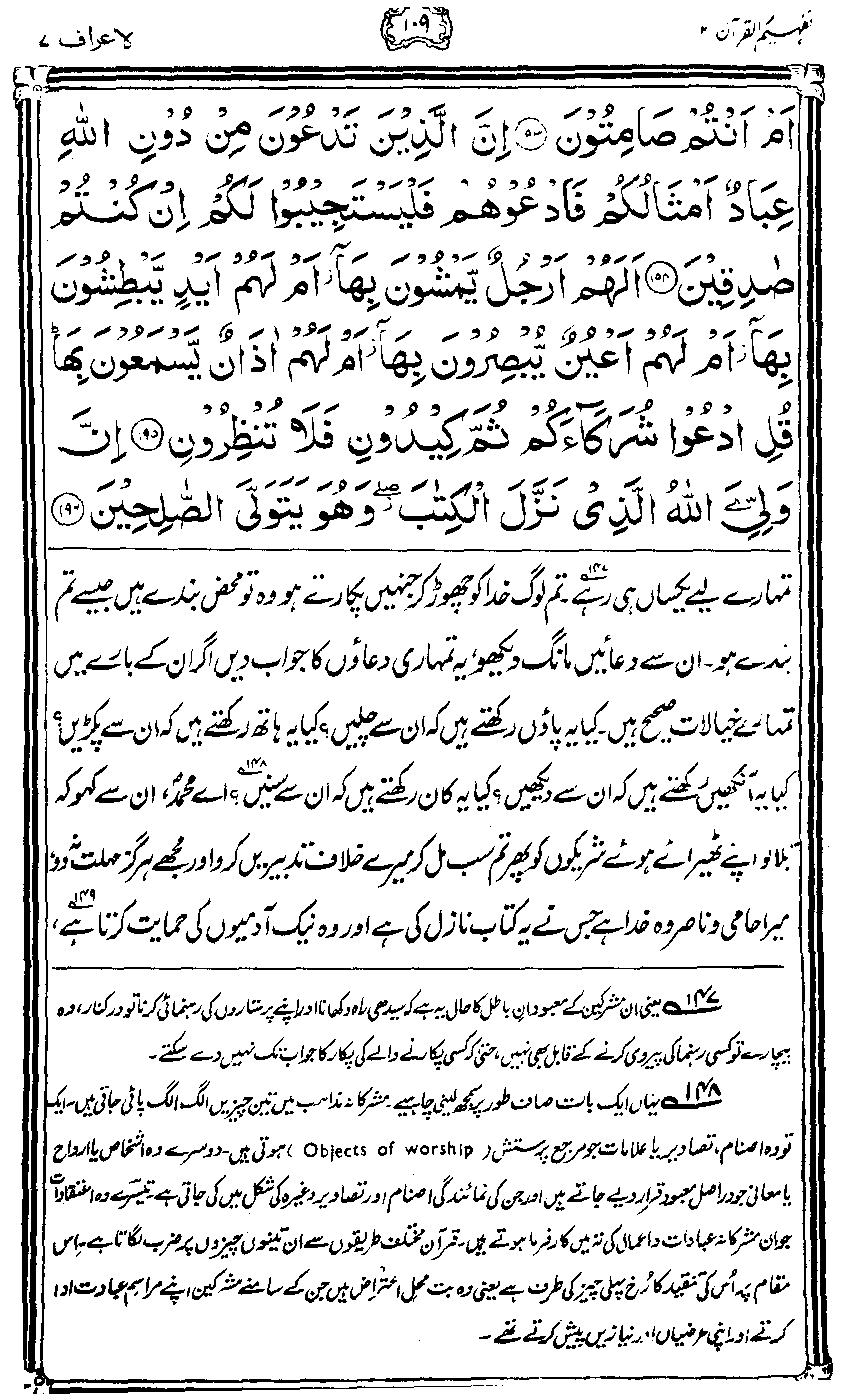 تفہیم القرآن ۲
۱۰۹
لاعراف ۷
اَمْ اَنْتُمْ صَامِتُوْنَ ﴿۱۹۳﴾ اِنَّ الَّذِيْنَ تَدْعُوْنَ مِنْ دُوْنِ اللّٰهِ
عِبَادٌ اَمْثَالُكُمْ فَادْعُوْهُمْ فَلْيَسْتَجِيْبُوْا لَكُمْ اِنْ كُنْتُمْ
صٰدِقِيْنَ ﴿۱۹۴﴾ اَلَهُمْ اَرْجُلٌ يَّمْشُوْنَ بِهَآ ۡ اَمْ لَهُمْ اَيْدٍ يَّبْطِشُوْنَ
بِهَآ ۡ اَمْ لَهُمْ اَعْيُنٌ يُّبْصِرُوْنَ بِهَآ ۡ اَمْ لَهُمْ اٰذَانٌ يَّسْمَعُوْنَ بِهَا ؕ
قُلِ ادْعُوْا شُرَكَآءَكُمْ ثُمَّ كِيْدُوْنِ فَلَا تُنْظِرُوْنِ ﴿۱۹۵﴾ اِنَّ
وَلِيِّ ےَ اللّٰهُ الَّذِيْ نَزَّلَ الْكِتٰبَ ۖ وَهُوَ يَتَوَلَّى الصّٰلِحِيْنَ ﴿۱۹۶﴾
تمہارے لیے یکساں ہی رہے۱۴۷۔ تم لوگ خدا کو چھوڑ کر جنہیں پکارتے ہو وہ تو محض بندے ہیں جیسے تم
بندے ہو۔ ان سے دعائیں مانگ دیکھو، یہ تمہاری دعاؤں کا جواب دیں اگر ان کے بارے میں
تمہارے خیالات صحیح ہیں۔ کیا یہ پاؤں رکھتے ہیں کہ ان سے چلیں؟ کیا یہ ہاتھ رکھتے ہیں کہ ان سے پکڑیں؟
کیا یہ آنکھیں رکھتے ہیں کہ ان سے دیکھیں؟ کیا یہ کان رکھتے ہیں کہ ان سے سنیں۱۴۸؟ اے محمدؐ، ان سے کہو کہ
بلا لو اپنے ٹھیرائے ہوئے شریکوں کو پھر تم سب مل کر میرے خلاف تدبیریں کرو اور مجھے ہرگز مہلت نہ دو،
میرا حامی و ناصر وہ خدا ہے جس نے یہ کتاب نازل کی ہے اور وہ نیک آدمیوں کی حمایت کرتا ہے۱۴۹،
۱۴۷ یعنی ان مشرکین کے معبودانِ باطل کا حال یہ ہے کہ سیدھی راہ دکھانا اور اپنے پرستاروں کی رہنمائی کرنا تو درکنار، وہ
بیچارے تو کسی رہنما کی پیروی کرنے کے قابل بھی نہیں، حتیٰ کہ کسی پکارنے والے کی پکار کا جواب تک نہیں دے سکتے۔
۱۴۸ یہاں ایک بات صاف طور پر سمجھ لینی چاہیے۔ مشرکانہ مذاہب میں تین چیزیں الگ الگ پائی جاتی ہیں۔ ایک
تو وہ اصنام، تصاویر یا علامات جو مرجع پرستش (Objects of worship) ہوتی ہیں۔ دوسرے وہ اشخاص یا ارواح
یا معانی جو دراصل معبود قرار دیے جاتے ہیں اور جن کی نمائندگی اصنام اور تصاویر وغیرہ کی شکل میں کی جاتی ہے۔ تیسرے وہ اعتقادات
جو ان مشرکانہ عبادات و اعمال کی تہ میں کارفرما ہوتے ہیں۔ قرآن مختلف طریقوں سے ان تینوں چیزوں پر ضرب لگاتا ہے۔ اس
مقام پر اُس کی تنقید کا رُخ پہلی چیز کی طرف ہے یعنی وہ بت محلِ اعتراض ہیں جن کے سامنے مشرکین اپنے مراسمِ عبادت ادا
کرتے اور اپنی عرضیاں اور نیازیں پیش کرتے تھے۔